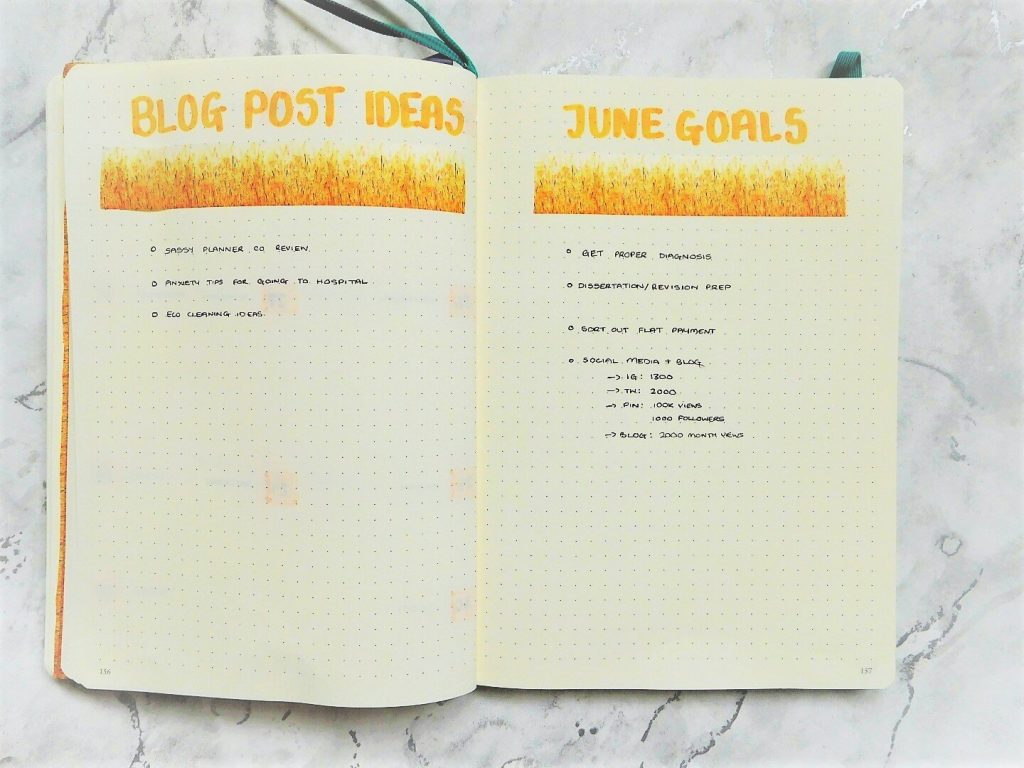 BLOG POST IDEAS
O SASSY PLANNER CO REVIEW.
O ANXIETY TIPS FOR GOING TO HOSPITAL
O ECO CLEANING IDEAS.
156
JUNE GOALS
O GET PROPER DIAGNOSIS
O DISSERTATION/REVISION PREP
O SORT OUT FLAT PAYMENT
O SOCIAL MEDIA + BLOG
→ IG: 1300
→ TW: 2000
→ PIN: 100K VIEWS
1000 FOLLOWERS
→ BLOG: 2000 MONTH VEWS
157